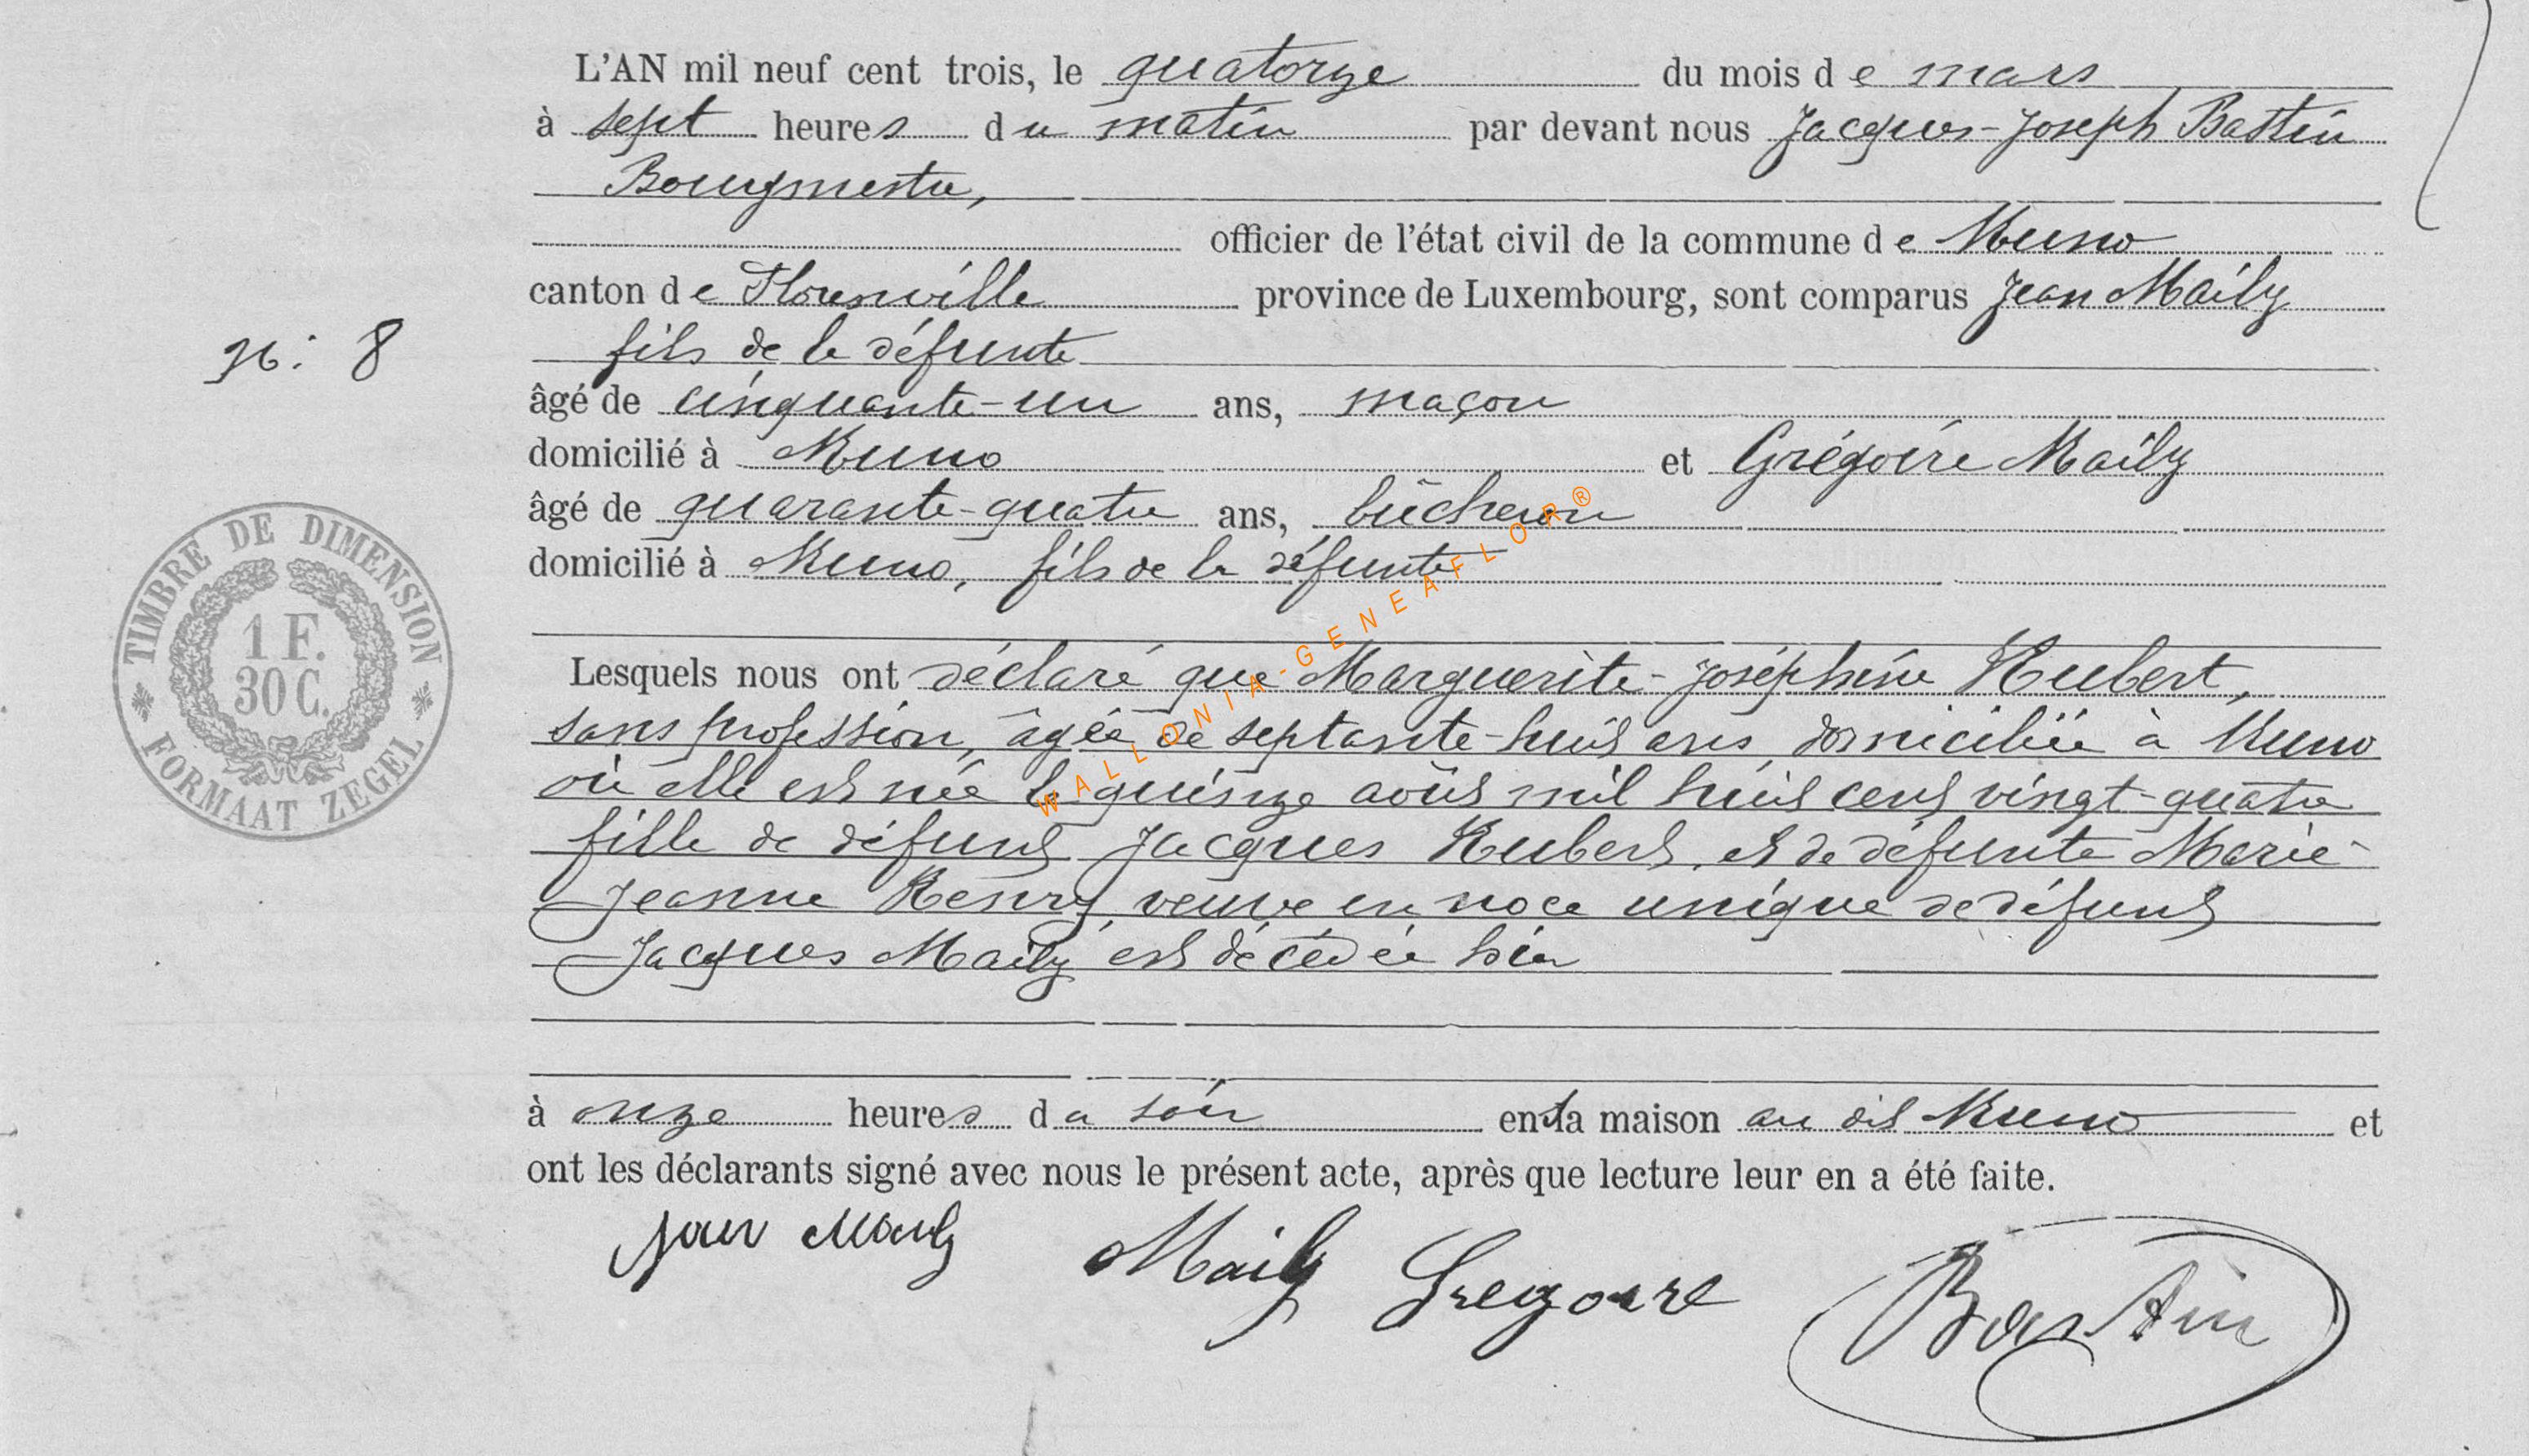 L'AN mil neuf cent trois, le quatorze du mois de mars
à sept heures du matin par devant nous Jacques-Joseph Bastin
Bourgmestre,
officier de l'état civil de la commune de Muno
canton de Florenville province de Luxembourg, sont comparus Jean Maily
fils de la défunte
N: 8
âgé de cinquante-un ans, maçon
domicilié à Muno et Grégoire Maily
âgé de quarante-quatre ans, bûcheron
domicilié à Muno, fils de la défunte
TIMBRE DE DIMENSION
1 F.
30 C.
FORMAAT ZEGEL
WALLONIA-GENEAFLOR®
Lesquels nous ont déclaré que Marguerite-Joséphine Hubert,
sans profession, âgée de septante-huit ans, domiciliée à Muno
où elle est née le quinze août mil huit cent vingt-quatre
fille de défunt Jacques Hubert et de défunte Marie-
Jeanne Henry, veuve en noce unique de défunt
Jacques Maily est décédée hier
à onze heures du soir en sa maison au dit Muno et
ont les déclarants signé avec nous le présent acte, après que lecture leur en a été faite.
Jean Maily Maily Gregoire Bastin